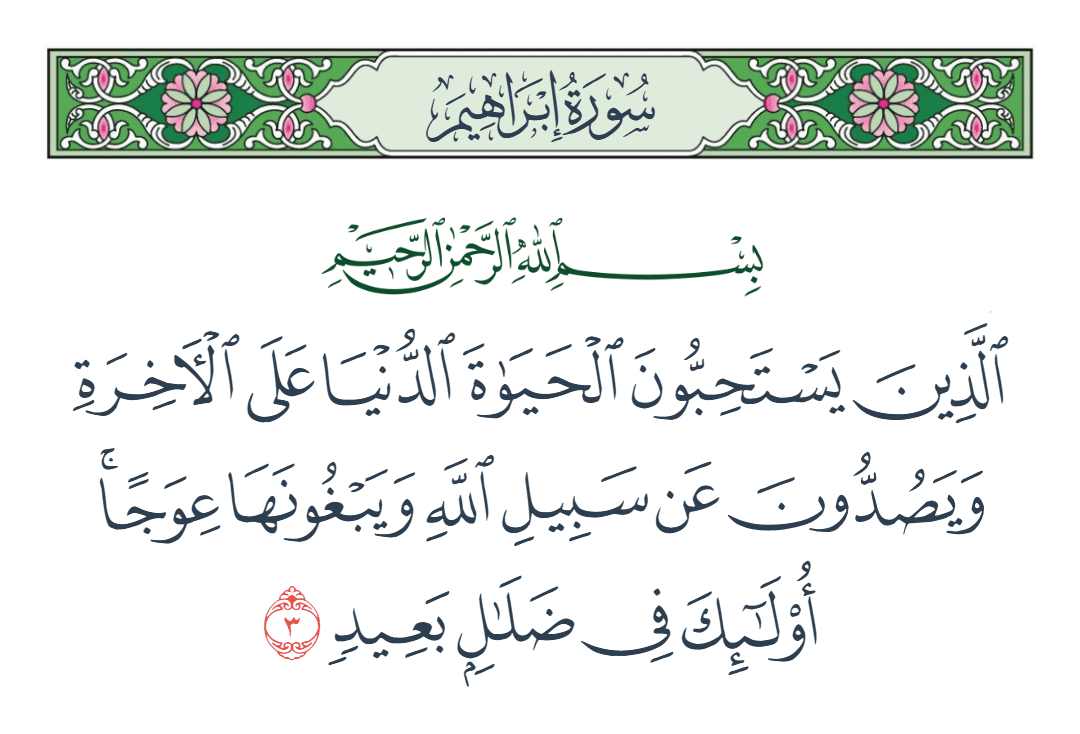 سُورَةُ إِبْرَاهِيمَ
بِسْمِ ٱللَّهِ ٱلرَّحْمَٰنِ ٱلرَّحِيمِ
ٱلَّذِينَ يَسْتَحِبُّونَ ٱلْحَيَوٰةَ ٱلدُّنْيَا عَلَى ٱلْأَخِرَةِ
وَيَصُدُّونَ عَن سَبِيلِ ٱللَّهِ وَيَبْغُونَهَا عِوَجًاۚ
أُوْلَٰٓئِكَ فِى ضَلَٰلِۭ بَعِيدِ ٣